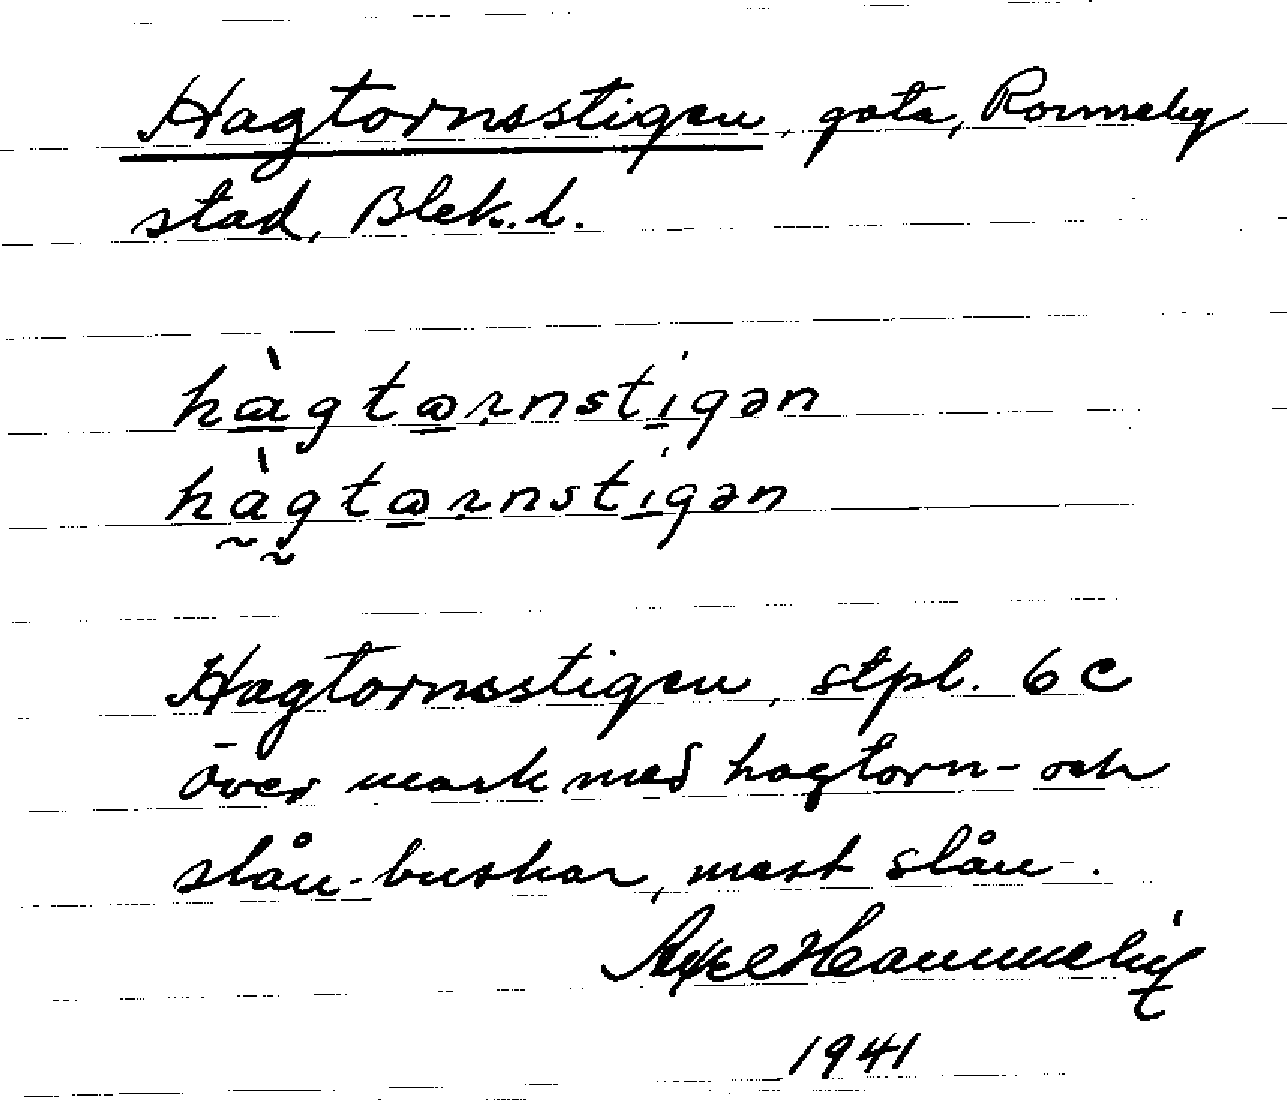 Hagtornsstigen, gata, Ronneby
stad, Blek. l.
hàgtɷrnstigən
hàgtɷrnstigən
Hagtornsstigen, stpl. 6 C
över mark med hagtorn- och
slån-buskar, mest slån-.
Axel
1941